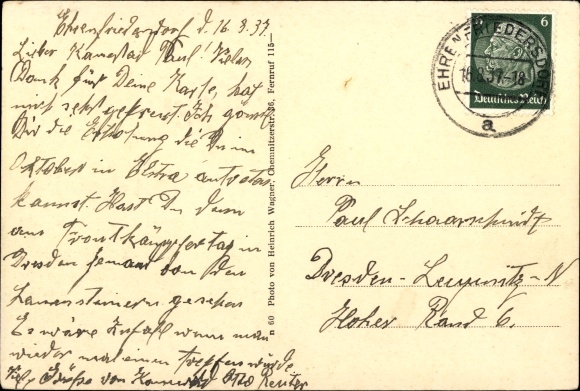 Ehrenfriedersdorf d. 16.8.37.
Lieber Kamerad Paul! Vielen
Dank für Deine Karte, hat
mich sehr gefreut. Ich gönne
Dir die Erholung die Du im
Oktober in Elstra antreten
kannst. Hast Du denn
am Frontkämpfertag in
Dresden jemand von den
gesehen
Es wäre Zufall wenn man
wieder mal einen treffen würde
Viele Grüße von Kamerad Otto Reuter
n 60 Photo von Heinrich Wagner, Chemnitzerstr. 36, Fernruf 115—
6
EHRENFRIEDERSDORF
16.8.37.-18
a
Deutsches Reich
Herrn
Paul Schaarschmidt
Dresden-Leubnitz-N
Hoher Rand 6.